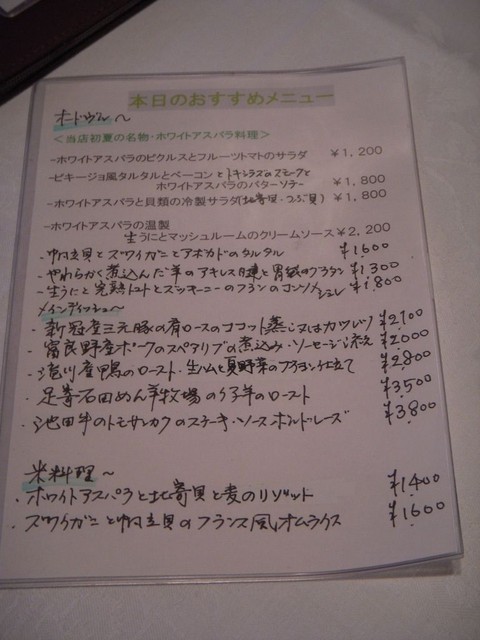 本日のおすすめメニュー
オードヴル～
＜当店初夏の名物・ホワイトアスパラ料理＞
-ホワイトアスパラのピクルスとフルーツトマトのサラダ ￥1,200
-ピキージョ風タルタルとベーコンとトキシラズのスモークと
ホワイトアスパラのバターソテー ￥1,800
-ホワイトアスパラと貝類の冷製サラダ(北寄貝・つぶ貝) ￥1,800
-ホワイトアスパラの温製
生うにとマッシュルームのクリームソース ￥2,200
・帆立貝とズワイガニとアボカドのタルタル ¥1,600
・やわらかく煮込んだ羊のアキレス腱と胃袋のグラタン ¥1,300
・生うにと完熟トマトとズッキーニのフランのコンソメジュレ ¥1,800
メインディッシュ～
・新冠産三元豚の肩ロースのココット蒸し又はカツレツ ¥2,100
・富良野産ポークのスペアリブの煮込み・ソーセージ添え ¥2,000
・滝川産鴨のロースト・生ハムと夏野菜のブイヨン仕立て ¥2,800
・足寄石田めん羊牧場の仔羊のロースト ¥3,500
・池田牛のトモサンカクのステーキ・ソースボルドレーズ ¥3,800
米料理～
・ホワイトアスパラと北寄貝と麦のリゾット ¥1,400
・ズワイガニと帆立貝のフランス風オムライス ¥1,600